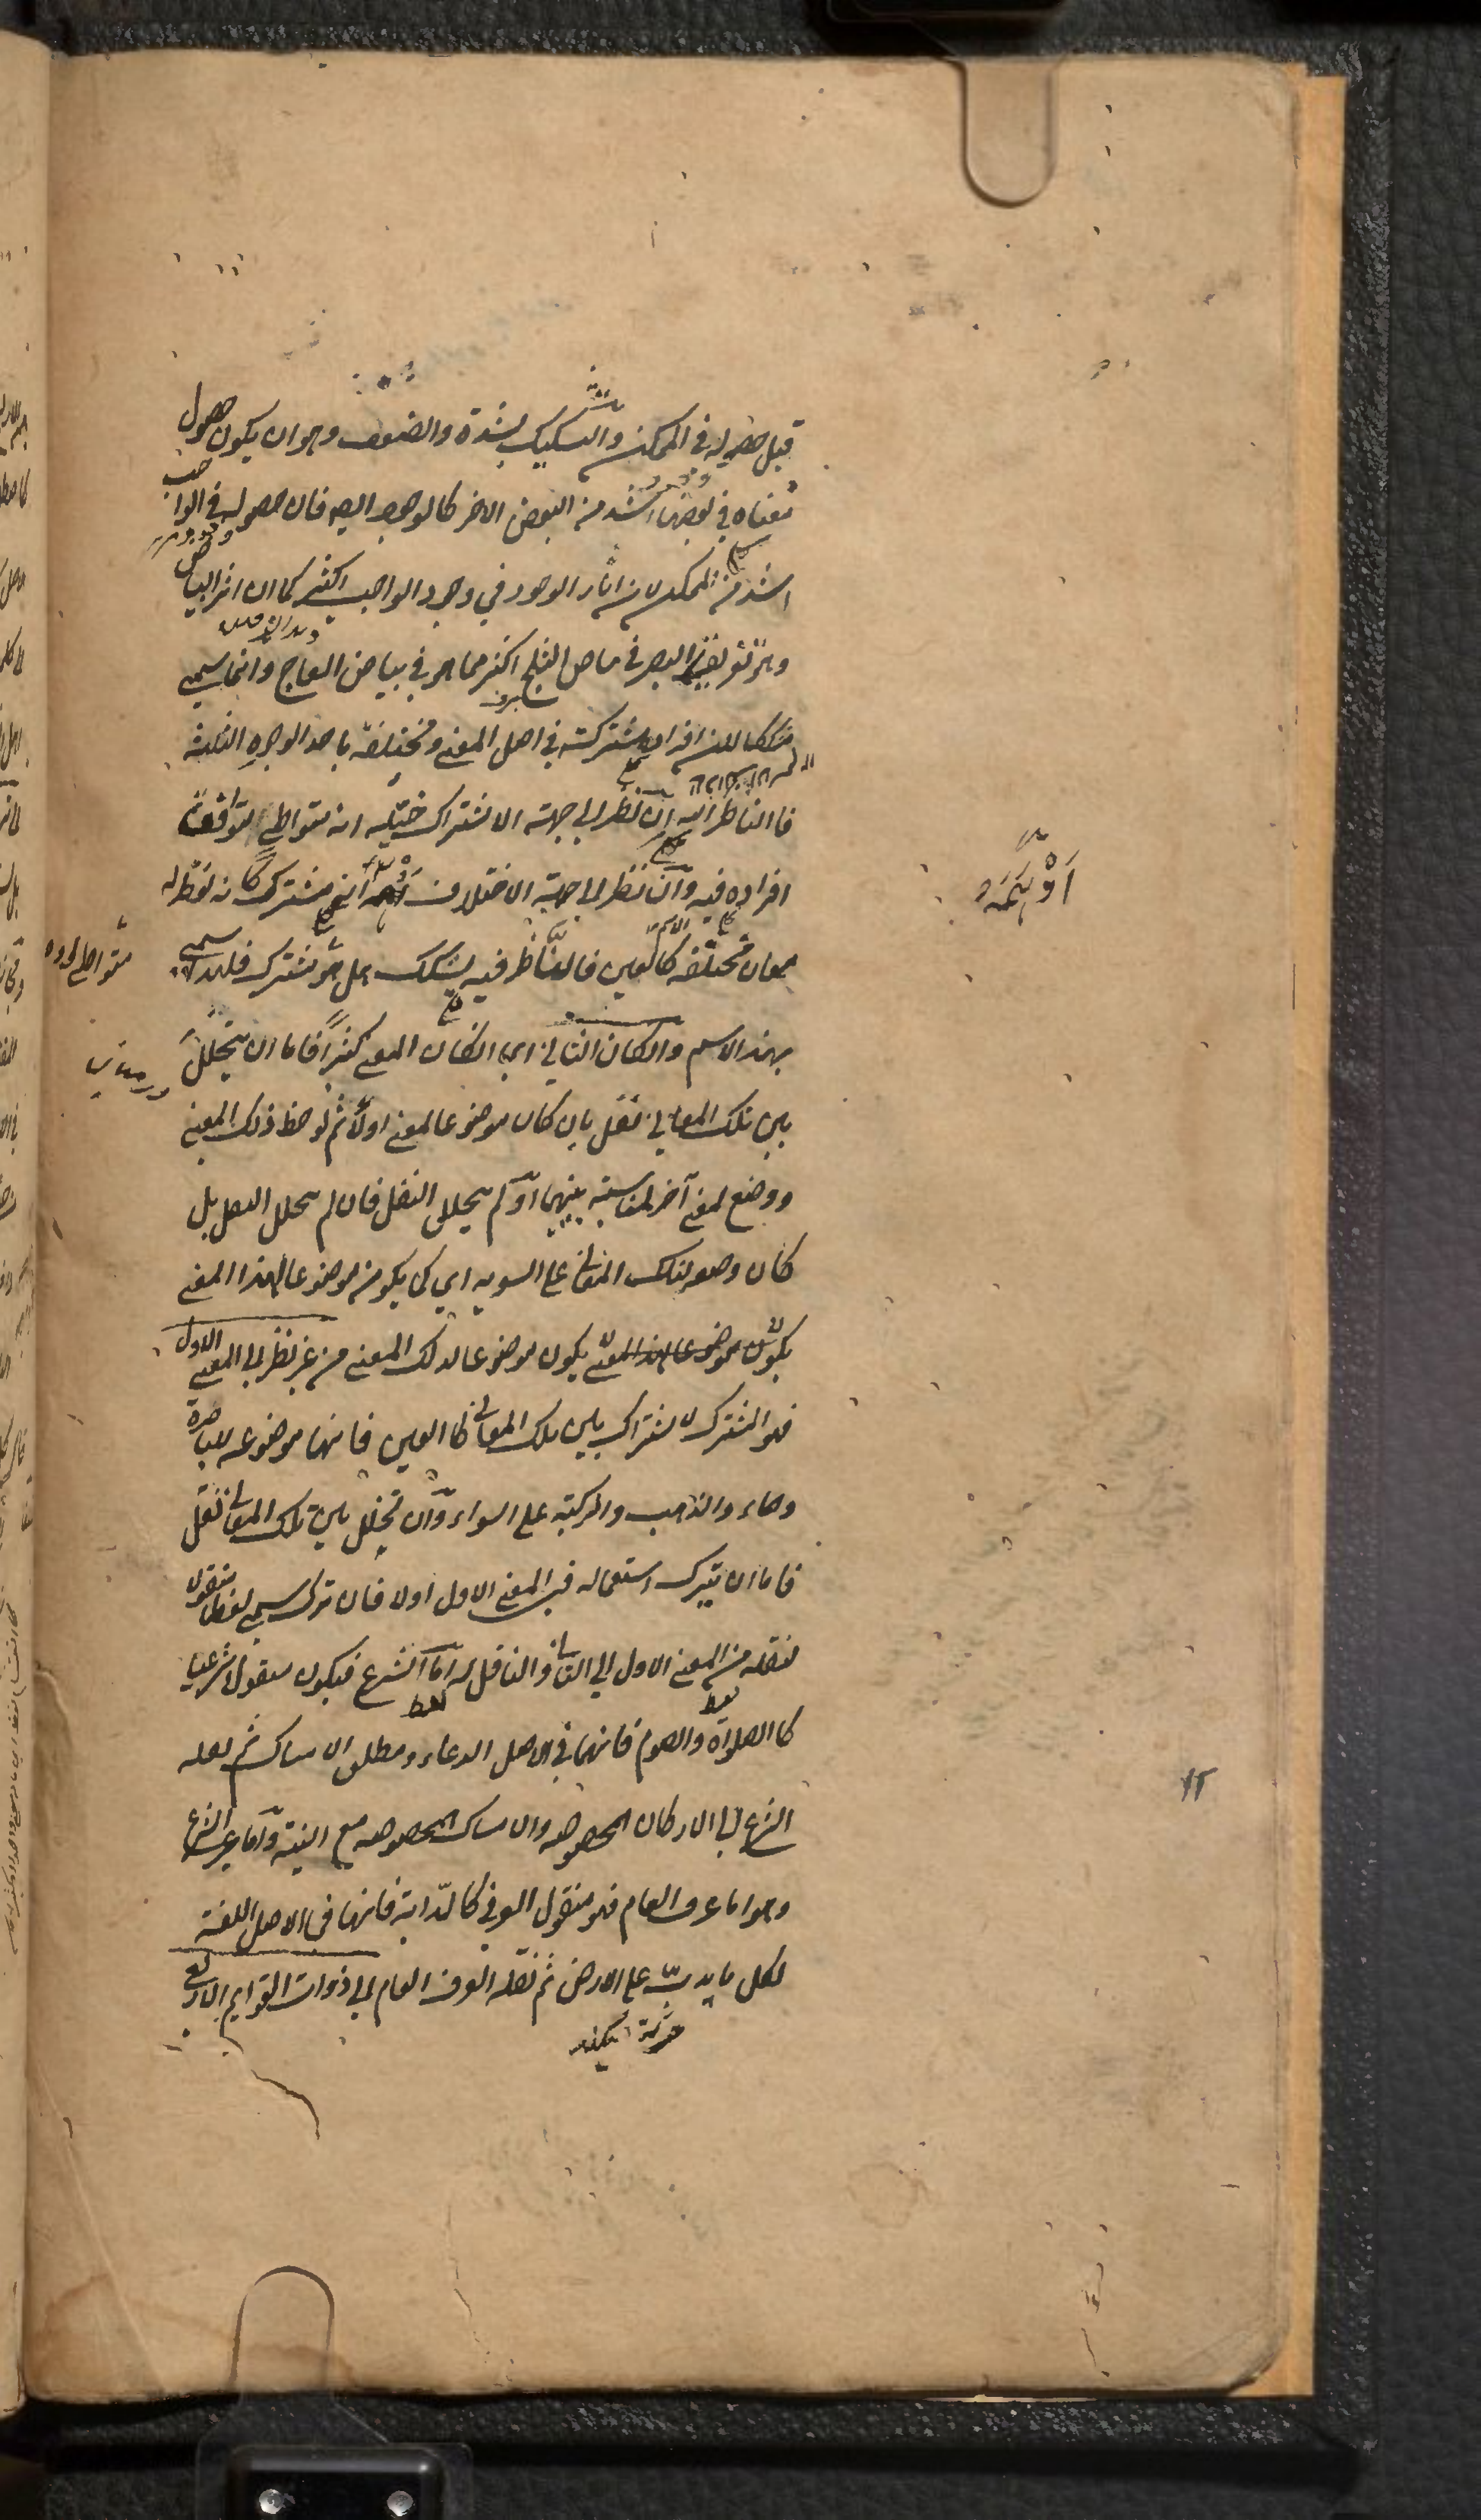 قبل حصوله في الممكن والتشكيك بشدة والضعف وهو ان يكون حصول
معناه في بعضها اشد من البعض الاخر كالوجود ايضا فان حصوله في الواجب
اشد من الممكن لان اثار الوجود في وجود الواجب اكثر كما ان اثر البياض
وهو تفريق البصر في بياض الثلج اكثر مما هو في بياض العاج وانما سمي
مشككا لان افراده مشتركة في اصل المعنى ومختلفة باحد الوجوه الثلثة
فالناظر اليه ان نظر الى جهة الاشتراك خيله انه متواطي لتوافق
افراده فيه وان نظر الى جهة الاختلاف اوهمه انه مشترك كانه لفظ له
معان مختلفة كالعين فالناظر فيه يشكك هل هو مشترك فلهذا سمي
بهذا الاسم وان كان الثاني اي ان كان المعنى كثيرا فاما ان يتخلل
بين تلك المعاني نقل بان كان موضوعا لمعنى اولا ثم لوحظ ذلك المعنى
ووضع لمعنى آخر لمناسبة بينهما او لم يتخلل النقل فان لم يتخلل النقل بل
كان وضعه لتلك المعاني على السوية اي كما يكون موضوعا لهذا المعنى
يكون موضوعا لهذا المعنى يكون موضوعا لذلك المعنى من غير نظر الى المعنى الاول
فهو المشترك لاشتراك بين تلك المعاني كالعين فانها موضوعة للباصرة
وماء والذهب والركبة على السواء وان تخلل بين تلك المعاني نقل
فاما ان يترك استعماله في المعنى الاول اولا فان ترك سمي لفظ منقولا
لنقله من المعنى الاول الى الثاني والناقل له اما الشرع فيكون منقولا شرعيا
كالصلواة والصوم فانهما في الاصل الدعاء ومطلق الامساك ثم نقله
الشرع الى الاركان المخصوصة والامساك المخصوصة مع النية واما غير الشرع
وهو اما عرف العام فهو منقول العرفي كالدابة فانها في الاصل اللغة
لكل ما يدب على الارض ثم نقله العرف العام الى ذوات القوايم الاربع
اوهمه
١٢